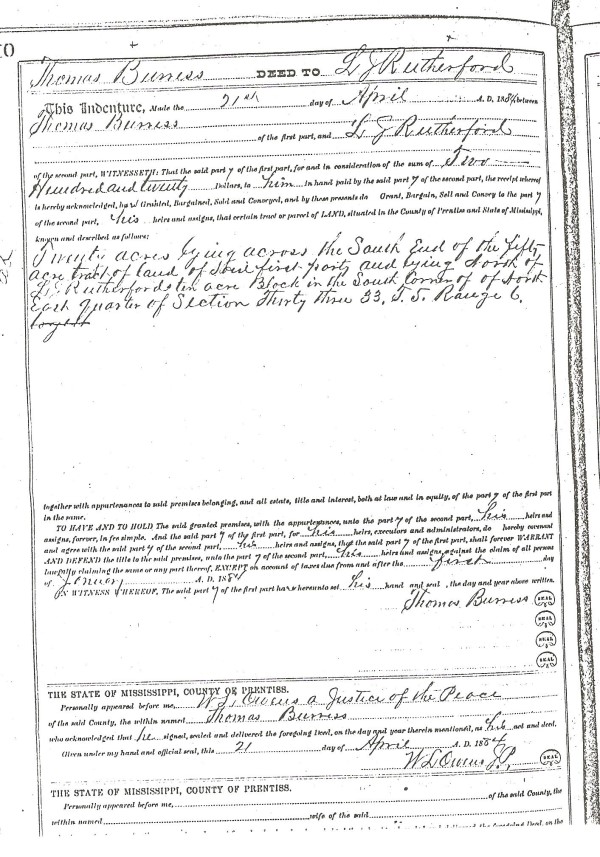 Thomas Burress DEED TO L J Rutherford
This Indenture, Made the 21st day of April A. D. 1884, between
Thomas Burress of the first part, and L J Rutherford
of the second part, WITNESSETH: That the said party of the first part, for and in consideration of the sum of Two
Hundred and twenty Dollars, to him in hand paid by the said party of the second part, the receipt whereof
is hereby acknowledged, has Granted, Bargained, Sold and Conveyed, and by these presents do Grant, Bargain, Sell and Convey to the party
of the second part, his heirs and assigns, that certain tract or parcel of LAND, situated in the County of Prentiss and State of Mississippi,
known and described as follows:
Twenty acres lying across the South End of the fifty
acre tract of land of said first party and lying North of
L. J. Rutherfords ten acre Block in the South corner of of North
East Quarter of Section Thirty three 33, T. 5. Range 6.
together with appurtenances to said premises belonging, and all estate, title and interest, both at law and in equity, of the party of the first part
in the same.
TO HAVE AND TO HOLD The said granted premises, with the appurtenances, unto the party of the second part, his heirs and
assigns, forever, in fee simple. And the said party of the first part, for his heirs, executors and administrators, do hereby covenant
and agree with the said party of the second part, his heirs and assigns, that the said party of the first part, shall forever WARRANT
AND DEFEND the title to the said premises, unto the party of the second part, his heirs and assigns, against the claim of all persons
lawfully claiming the same or any part thereof, EXCEPT on account of taxes due from and after the first day
of January A. D. 1884
IN WITNESS WHEREOF, The said party of the first part has hereunto set his hand and seal, the day and year above written.
Thomas Burress SEAL
SEAL
SEAL
SEAL
THE STATE OF MISSISSIPPI, COUNTY OF PRENTISS.
Personally appeared before me, W L Owens a Justice of the Peace
of the said County, the within named Thomas Burress
who acknowledged that he signed, sealed and delivered the foregoing Deed, on the day and year therein mentioned, as his act and deed.
Given under my hand and official seal, this 21 day of April A. D. 1884
W L Owens J.P. SEAL
THE STATE OF MISSISSIPPI, COUNTY OF PRENTISS.
Personally appeared before me, of the said County, the
within named wife of the said